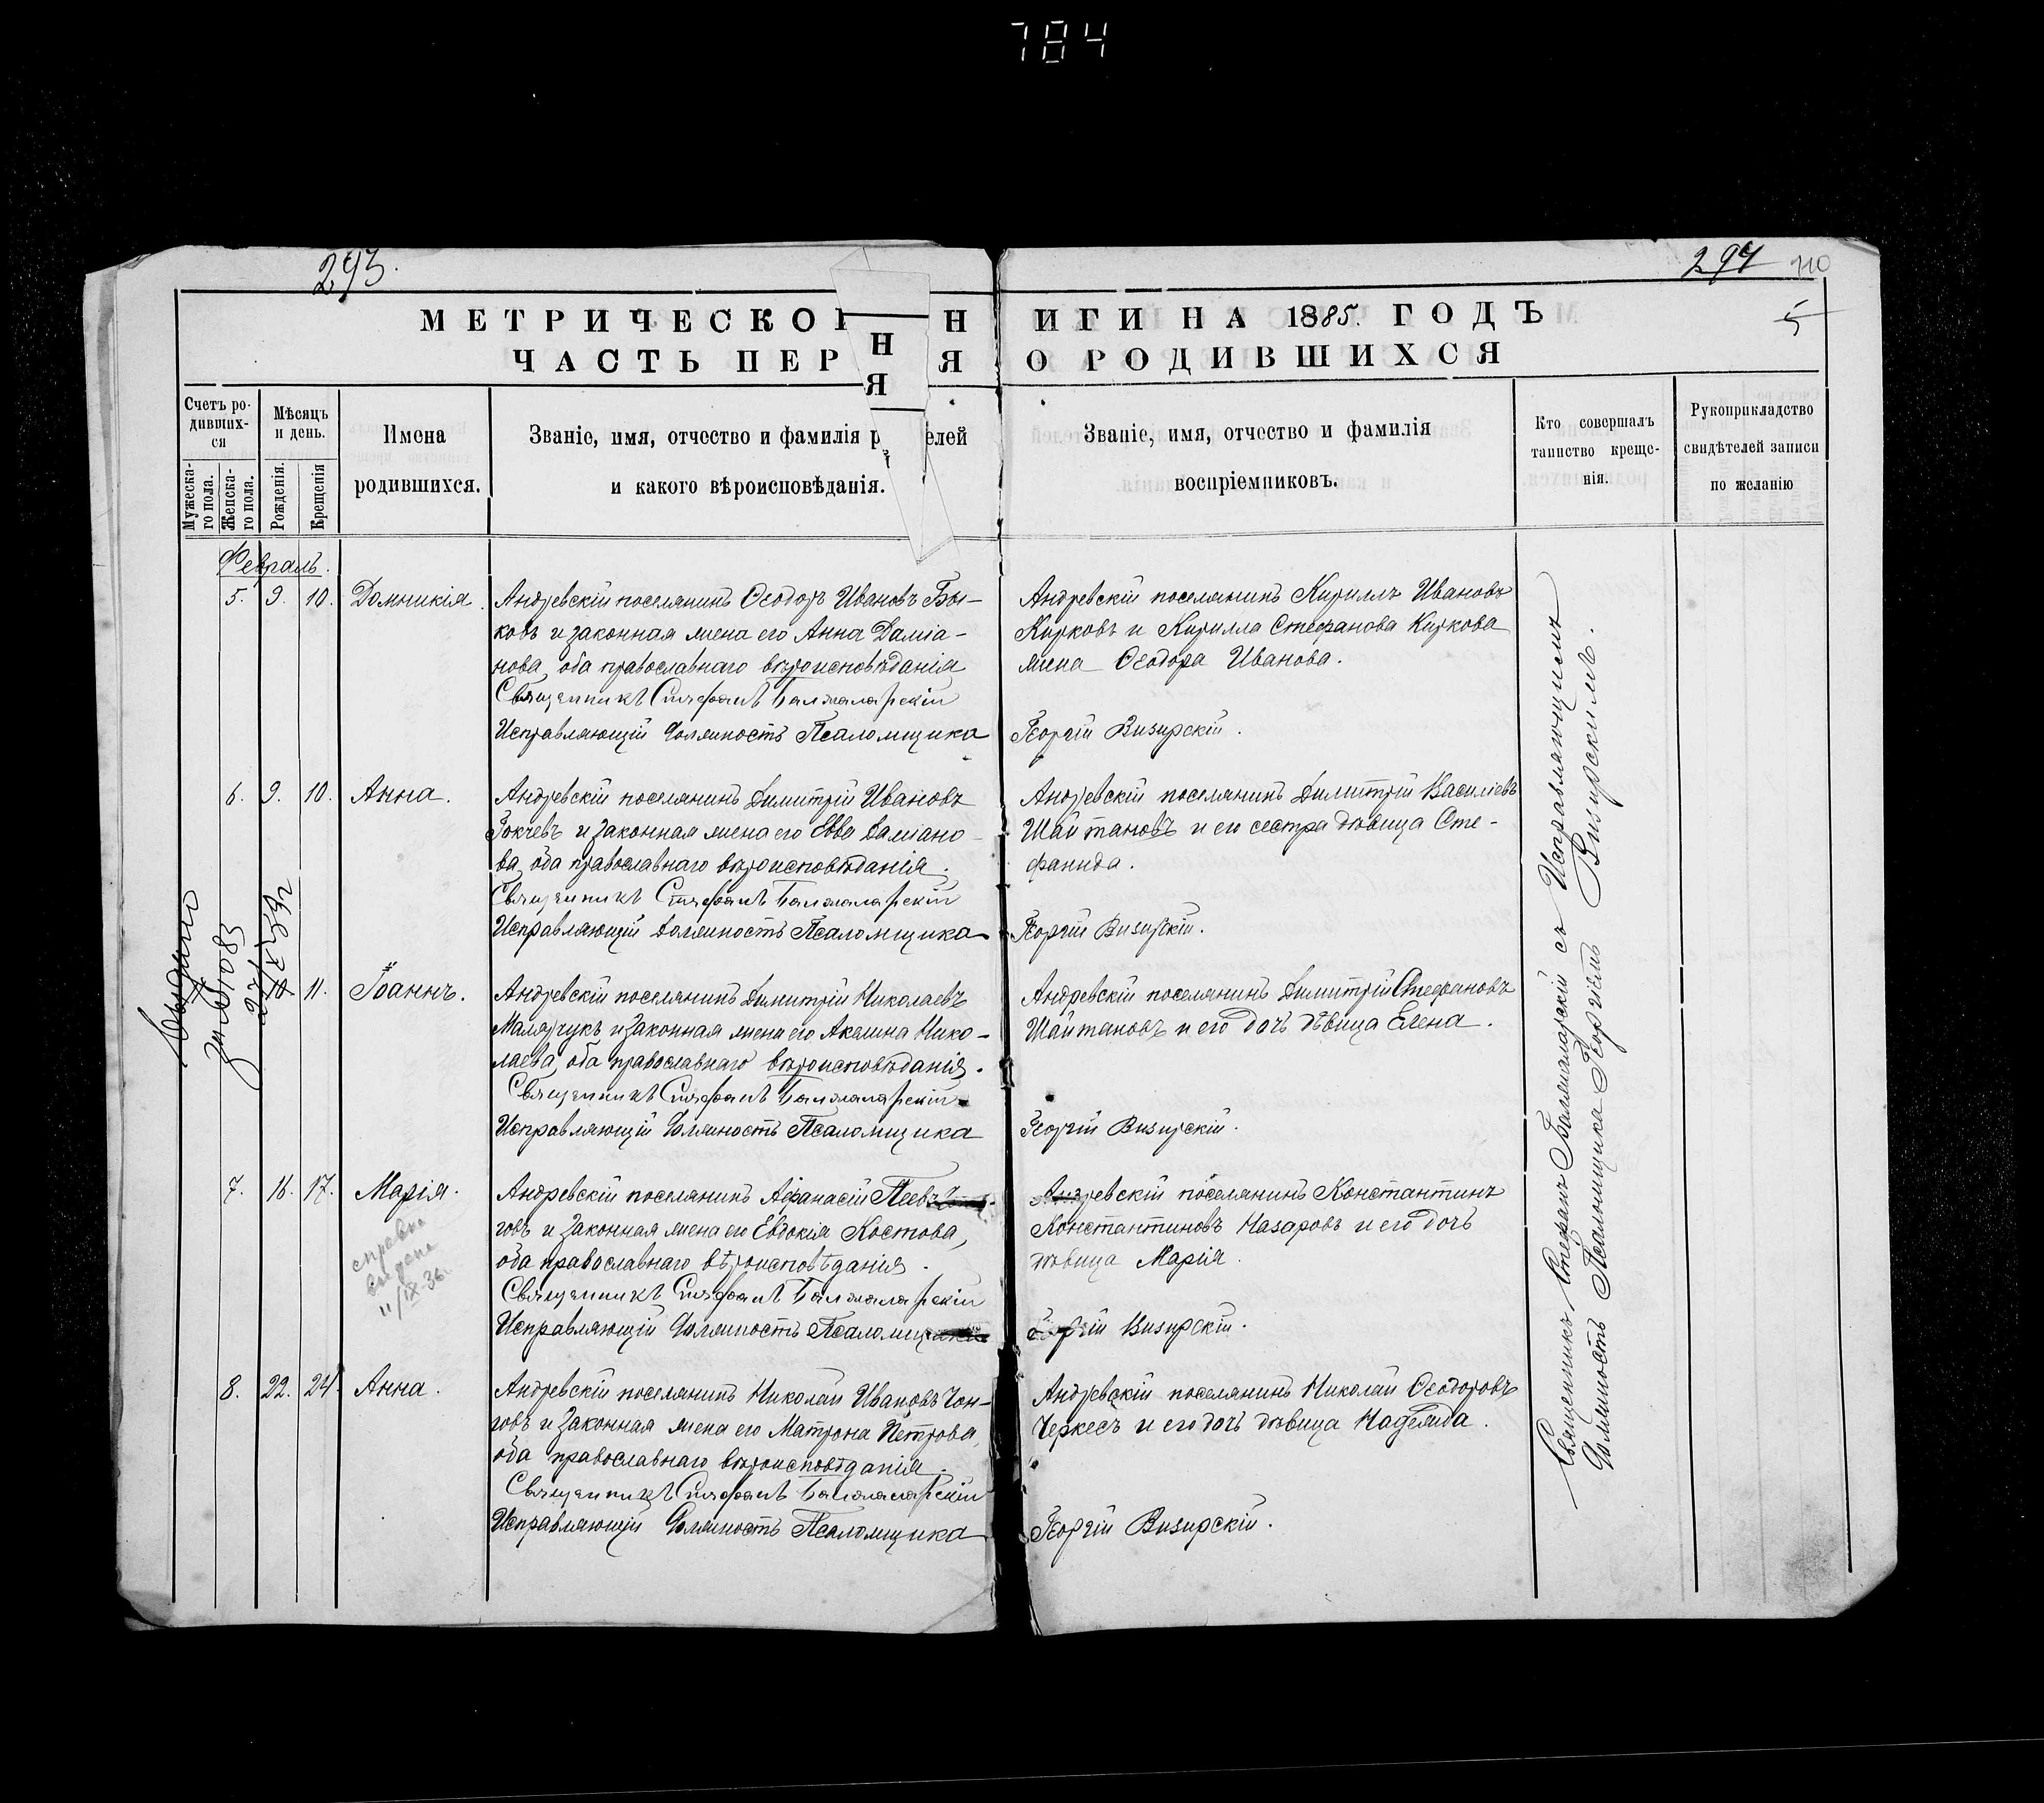 784
293.
294
110
5
МЕТРИЧЕСКОЙ КНИГИ НА 1885. ГОДЪ
ЧАСТЬ ПЕРВАЯ О РОДИВШИХСЯ
Счетъ ро-
дивших-
ся
Мужеска-
го пола.
Женска-
го пола.
Мѣсяцъ
и день.
Рожденія.
Крещенія
Имена
родившихся.
Званіе, имя, отчество и фамилія р елей
и какого вѣроисповѣданія.
Званіе, имя, отчество и фамилія
воспріемниковъ.
Кто совершалъ
таинство креще-
нія.
Рукоприкладство
свидѣтелей записи
по желанію
Февраль.
5. 9. 10. Домникія.
Андревскій поселянинъ Ѳеодоръ Ивановъ Бы-
ковъ и законная жена его Анна Даміа-
нова, оба православнаго вѣроисповѣданія
Священникъ Стефанъ Балжаларскій
Исправляющій должность Псаломщика Георгій Визирскій.
Андревскій поселянинъ Кириллъ Ивановъ
Кирковъ и Кирилла Стефанова Киркова
жена Ѳеодора Иванова.
6. 9. 10. Анна.
Андревскій поселянинъ Димитрій Ивановъ
законная жена его Евва Даміано-
ва, оба православнаго вѣроисповѣданія.
Священникъ Стефанъ Балжаларскій
Исправляющій должность Псаломщика Георгій Визирскій.
Андревскій поселянинъ Димитрій Василіевъ
Шайтановъ и его сестра дѣвица Сте-
фанида.
Выдано
за № 1083
11. Іоаннъ.
Андревскій поселянинъ Димитрій Николаевъ
Малярчукъ и законная жена его Акелина Нико-
лаева, оба православнаго вѣроисповѣданія.
Священникъ Стефанъ Балжаларскій
Исправляющій должность Псаломщика Георгій Визирскій.
Андревскій поселянинъ Димитрій Стефановъ
Шайтановъ и его дочь дѣвица Елена.
7. 16. 17. Марія.
справка
выдана
11/IX-36
Андревскій поселянинъ Афанасій Пеевъ
говъ и законная жена его Евдокія Костова,
оба православнаго вѣроисповѣданія.
Священникъ Стефанъ Балжаларскій
Исправляющій должность Псаломщика Георгій Визирскій.
Андревскій поселянинъ Константинъ
Константиновъ Назаровъ и его дочь
дѣвица Марія.
8. 22. 24. Анна.
Андревскій поселянинъ Николай Ивановъ Чон-
говъ и законная жена его Матрона Петрова,
оба православнаго вѣроисповѣданія.
Священникъ Стефанъ Балжаларскій
Исправляющій должность Псаломщика Георгій Визирскій.
Андревскій поселянинъ Николай Ѳеодоровъ
Черкесъ и его дочь дѣвица Надежда.
Священникъ Стефанъ Балжаларскій съ Исправляющимъ
должность Псаломщика Георгіемъ Визирскимъ.